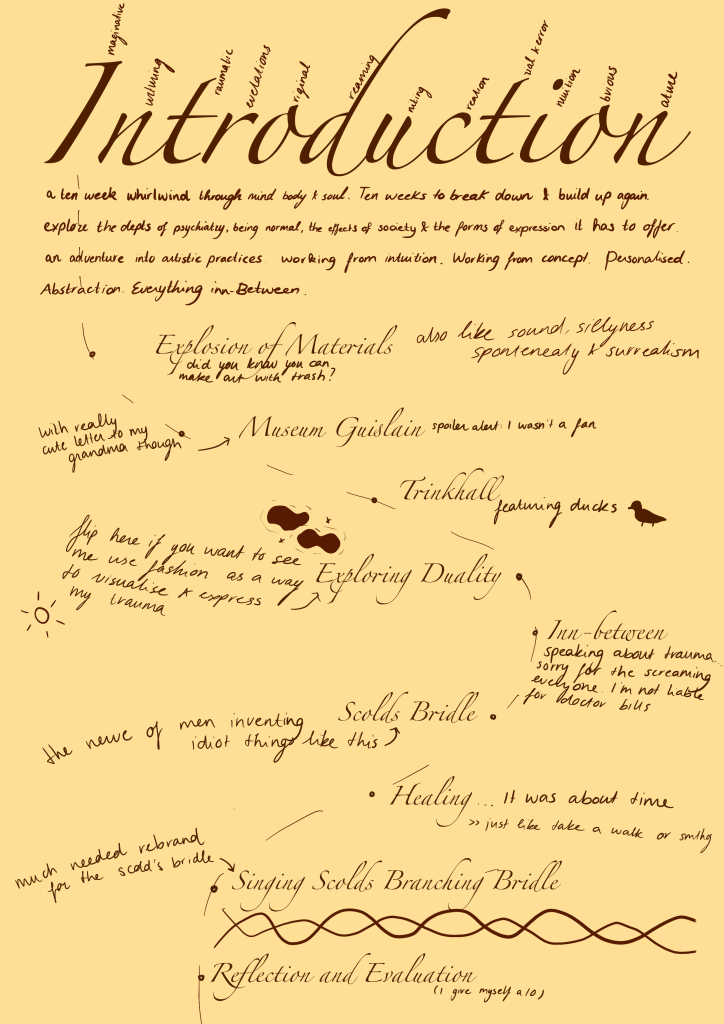 imaginative
nutruning
raumatic
evelations
riginal
reaming
niting
reation
rial & error
ntuition
bvious
ature
Introduction
a ten week whirlwind through mind body & soul. Ten weeks to break down & build up again.
explore the depts of psychiatry, being normal, the effects of society & the forms of expression it has to offer.
an adventure into artistic practices. working from intuition. Working from concept. Personalised.
Abstraction. Everything inn-Between.
Explosion of Materials
also like sound, sillyness
sponteneaty & surrealism
did you know you can
make art with trash?
with really
cute letter to my
grandma though
Museum Guislain
spoiler alert: I wasn't a fan
Trinkhall
featuring ducks
flip here if you want to see
me use fashion as a way
to visualise & express
my trauma
Exploring Duality
Inn-between
speaking about trauma...
sorry for the screaming
everyone. I'm not liable
for doctor bills
Scolds Bridle
the nerve of men inventing
idiot things like this
Healing
... It was about time
>> just like take a walk or smthg
much needed rebrand
for the scold's bridle
Singing Scolds Branching Bridle
Reflection and Evaluation
(I give myself a 10)